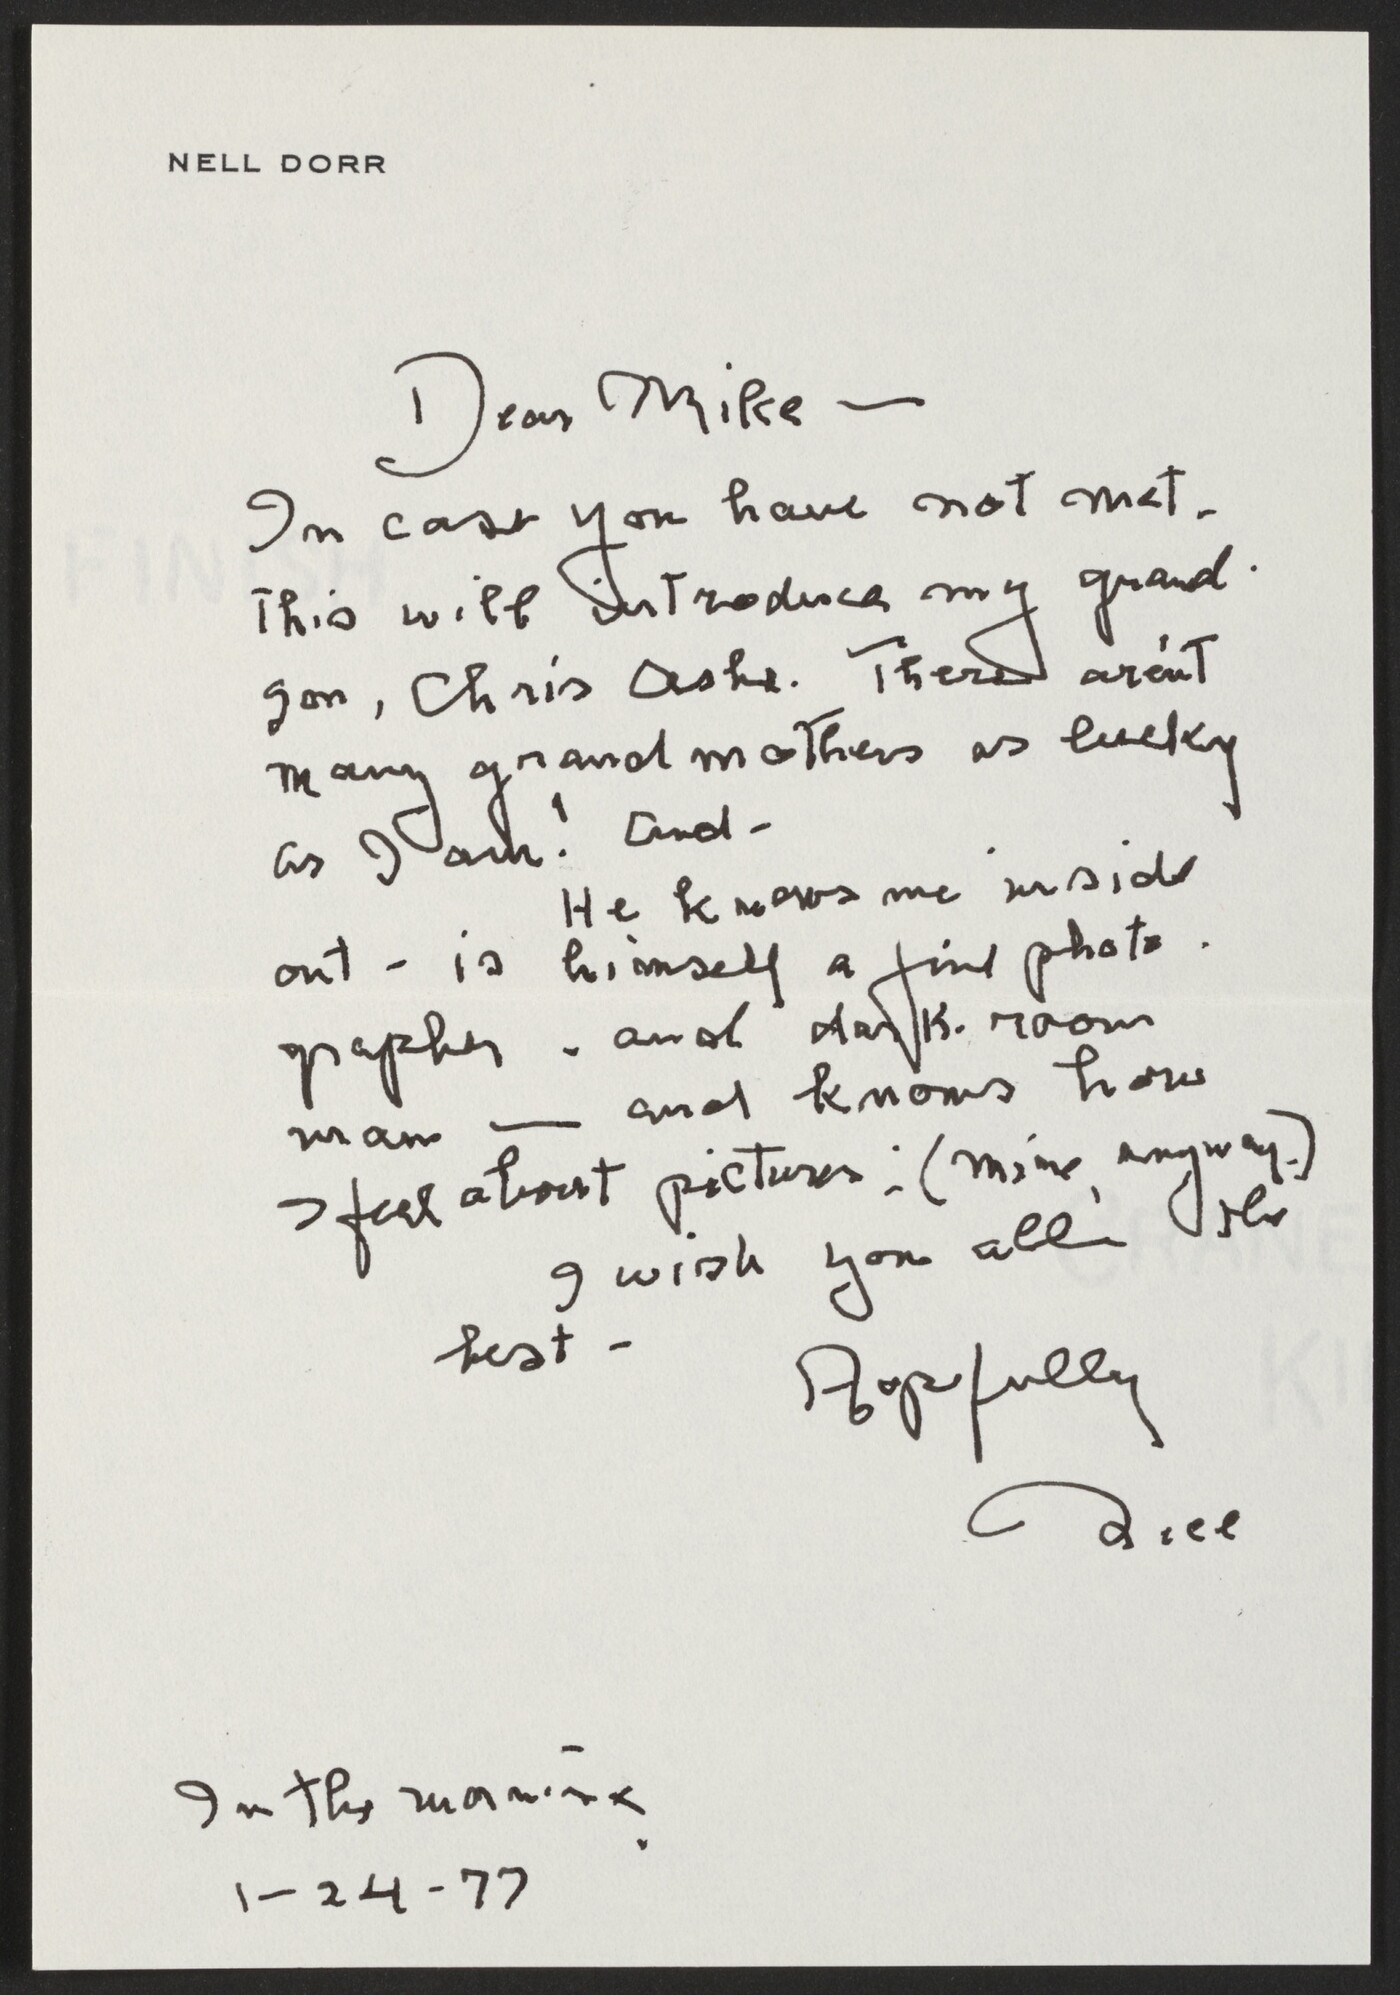 NELL DORR
Dear Mike —
In case you have not met -
This will introduce my grand -
son, Chris Ashe. There aren't
many grandmothers as lucky
as I am! And -
He knows me inside
out - is himself a fine photo -
grapher - and dark-room
man — and knows how
I feel about pictures: (mine, anyway.)
I wish you all the
best -
Hopefully
Nell
In the morning.
1-24-77
FINISH
CRANE
KI